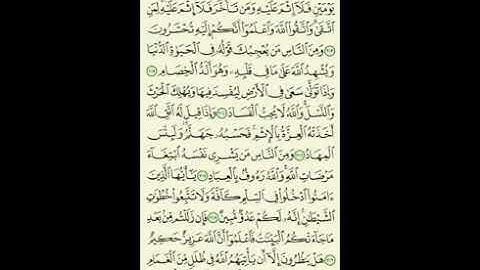 يَوْمَيْنِ فَلَآ إِثْمَ عَلَيْهِ وَمَن تَأَخَّرَ فَلَآ إِثْمَ عَلَيْهِ لِمَنِ
ٱتَّقَىٰ وَٱتَّقُوا۟ ٱللَّهَ وَٱعْلَمُوٓا۟ أَنَّكُمْ إِلَيْهِ تُحْشَرُونَ
٢٠٣ وَمِنَ ٱلنَّاسِ مَن يُعْجِبُكَ قَوْلُهُۥ فِى ٱلْحَيَوٰةِ ٱلدُّنْيَا
وَيُشْهِدُ ٱللَّهَ عَلَىٰ مَا فِى قَلْبِهِۦ وَهُوَ أَلَدُّ ٱلْخِصَامِ
٢٠٤ وَإِذَا تَوَلَّىٰ سَعَىٰ فِى ٱلْأَرْضِ لِيُفْسِدَ فِيهَا وَيُهْلِكَ ٱلْحَرْثَ
وَٱلنَّسْلَ وَٱللَّهُ لَا يُحِبُّ ٱلْفَسَادَ ٢٠٥ وَإِذَا قِيلَ لَهُ ٱتَّقِ ٱللَّهَ
أَخَذَتْهُ ٱلْعِزَّةُ بِٱلْإِثْمِ فَحَسْبُهُۥ جَهَنَّمُ وَلَبِئْسَ
ٱلْمِهَادُ ٢٠٦ وَمِنَ ٱلنَّاسِ مَن يَشْرِى نَفْسَهُ ٱبْتِغَآءَ
مَرْضَاتِ ٱللَّهِ وَٱللَّهُ رَءُوفٌۢ بِٱلْعِبَادِ ٢٠٧ يَٰٓأَيُّهَا ٱلَّذِينَ
ءَامَنُوا۟ ٱدْخُلُوا۟ فِى ٱلسِّلْمِ كَآفَّةً وَلَا تَتَّبِعُوا۟ خُطُوَٰتِ
ٱلشَّيْطَٰنِ إِنَّهُۥ لَكُمْ عَدُوٌّ مُّبِينٌ ٢٠٨ فَإِن زَلَلْتُم مِّنۢ بَعْدِ
مَا جَآءَتْكُمُ ٱلْبَيِّنَٰتُ فَٱعْلَمُوٓا۟ أَنَّ ٱللَّهَ عَزِيزٌ حَكِيمٌ
٢٠٩ هَلْ يَنظُرُونَ إِلَّآ أَن يَأْتِيَهُمُ ٱللَّهُ فِى ظُلَلٍ مِّنَ ٱلْغَمَامِ